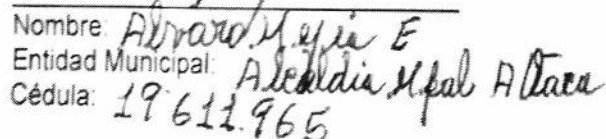 Nombre: Alvaro Mejia E
Entidad Municipal: Alcaldia Mpal
Cédula: 19 611.965